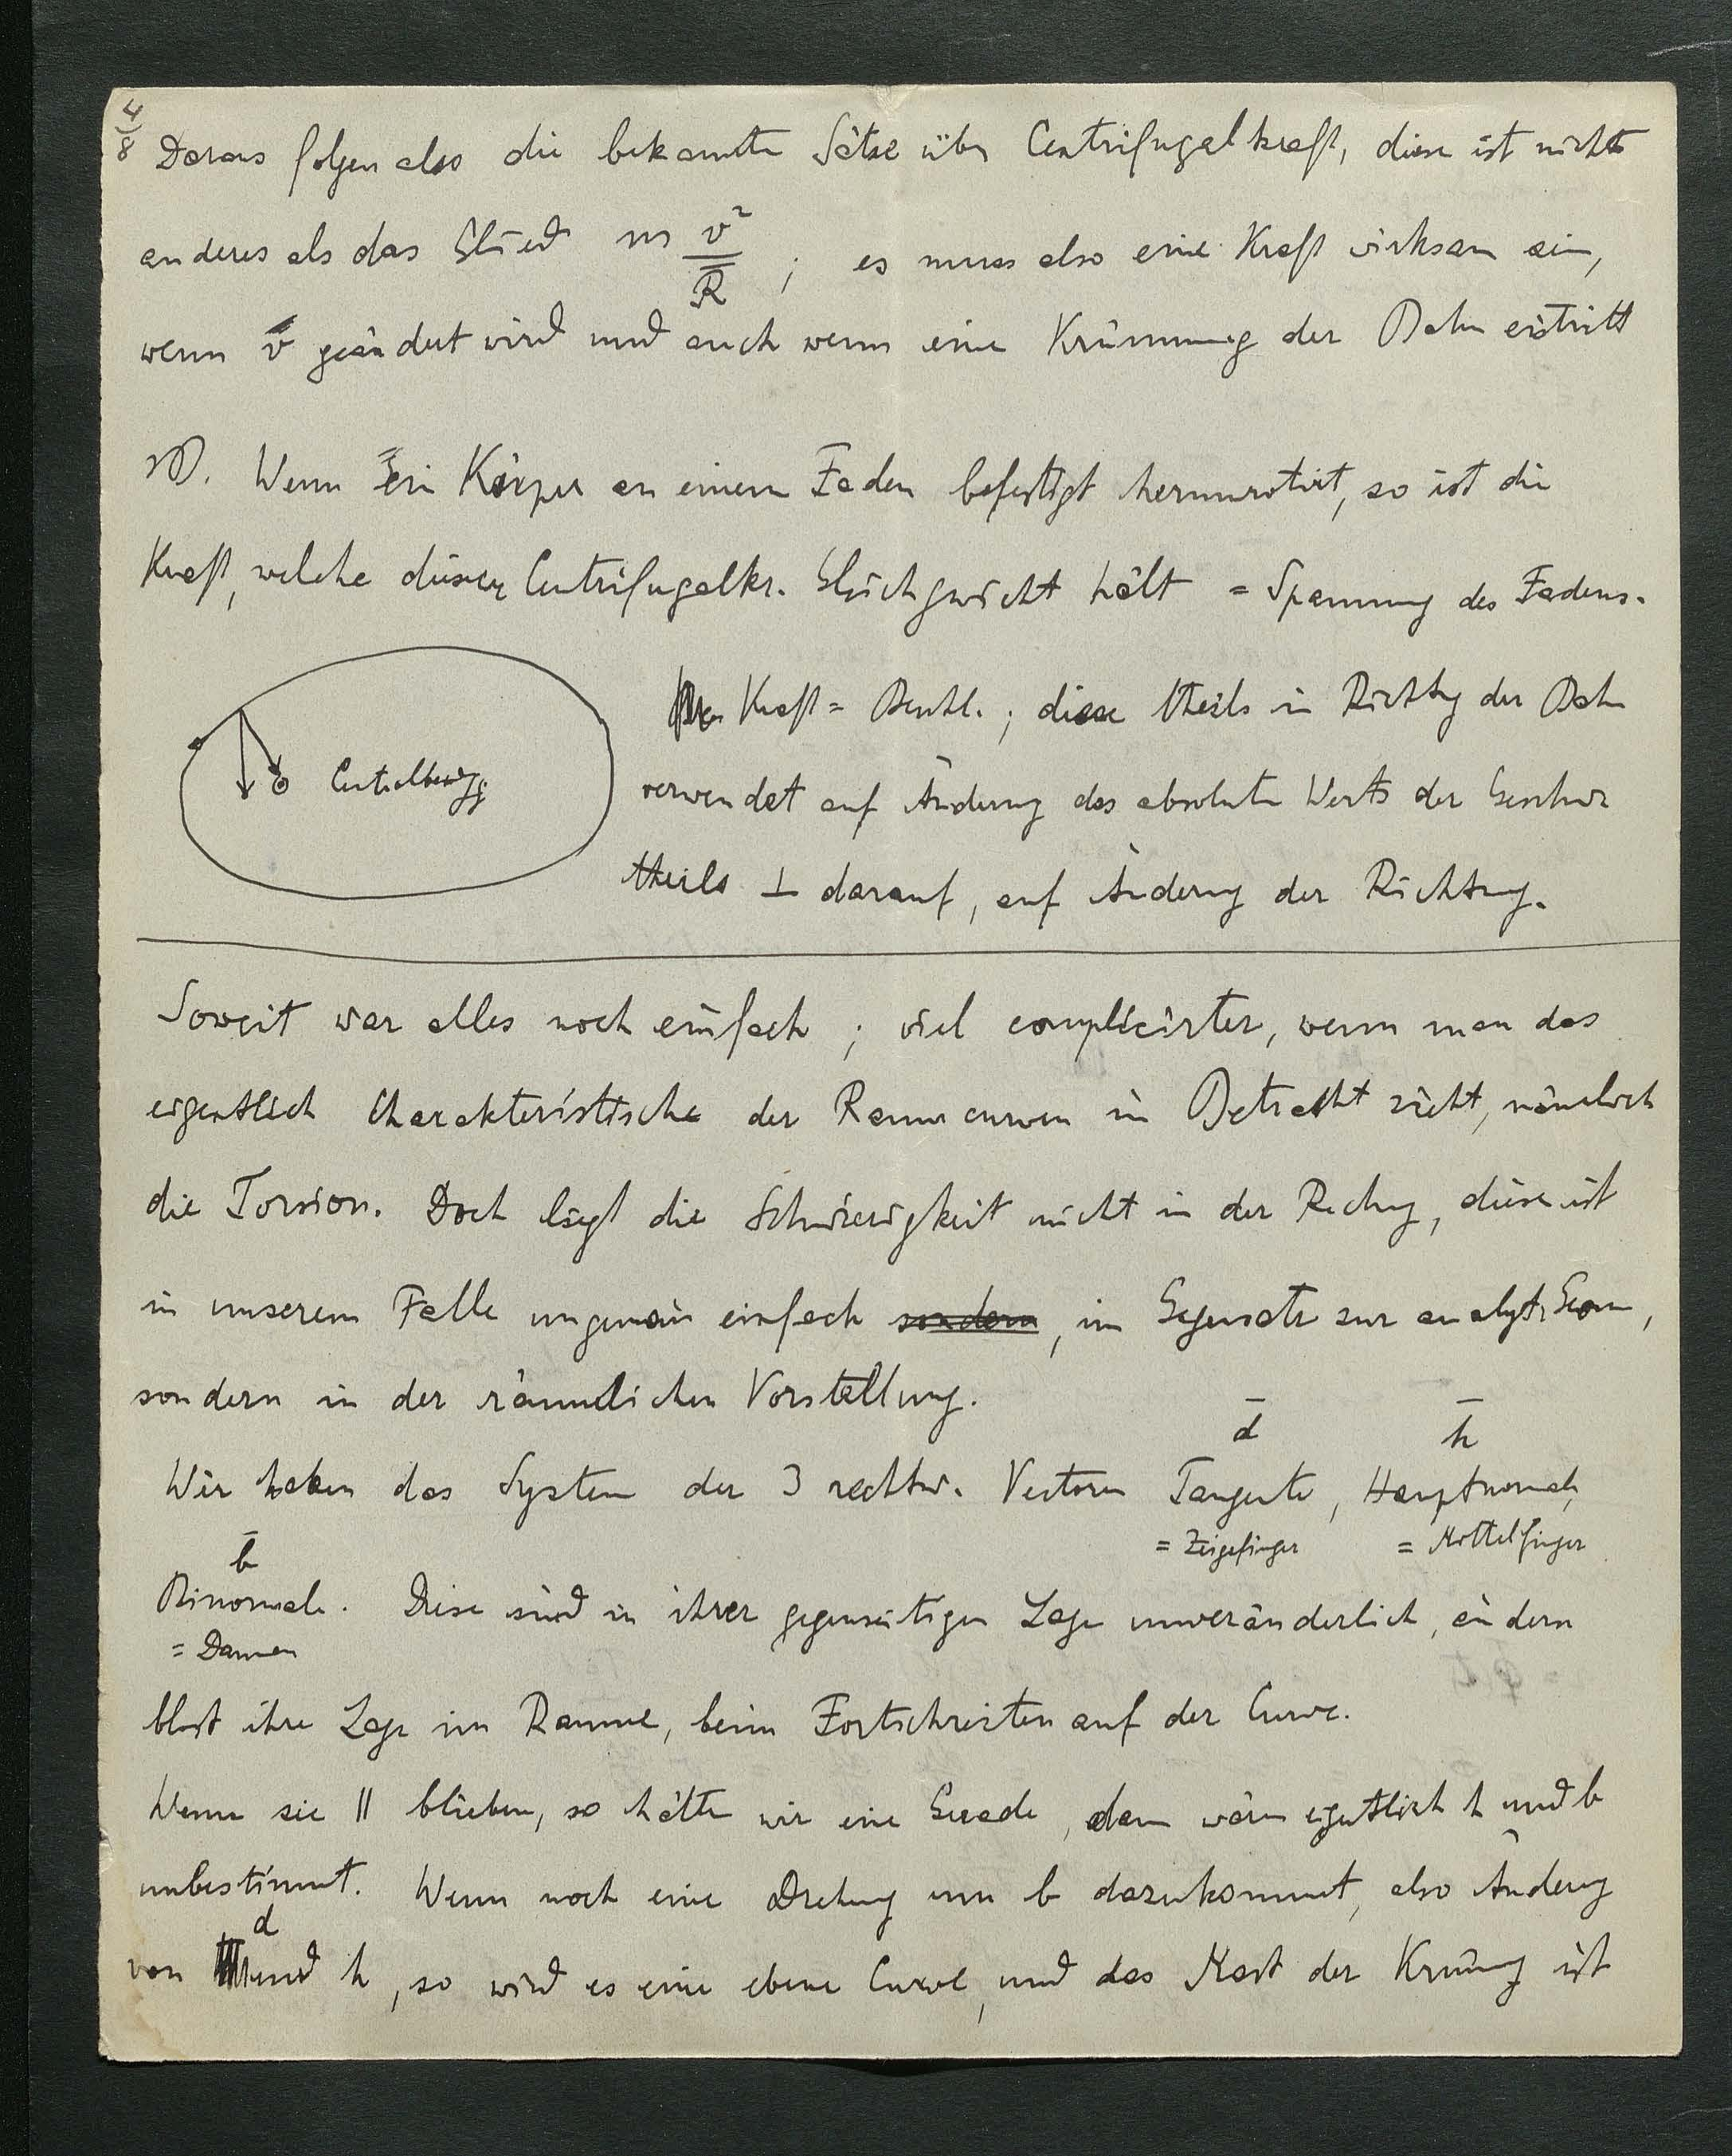 4/8
Daraus folgen also die bekannten Sätze über Centrifugalkraft, diese ist nichts
anderes als das Glied m v²/R ; es muss also eine Kraft wirksam sein,
wenn v̄ geändert wird und auch wenn eine Krümmung der Bahn eintritt
Wenn ein Körper an einem Faden befestigt herumrotirt, so ist die
Kraft, welche dieser Centrifugalkr. Gleichgewicht hält = Spannung des Fadens.
Kraft = Beschl. ; diese theils in Richtg der Bahn
Centralbewgg
verwendet auf Änderung des absoluten Werts der Geschw
theils ⊥ darauf, auf Änderung der Richtung.
Soweit war alles noch einfach ; viel complicirter, wenn man das
eigentlich Charakteristische der Raumcurven in Betracht zieht, nämlich
die Torsion. Doch liegt die Schwierigkeit nicht in der Rechng, diese ist
in unserem Falle ungemein einfach sondern, im Gegensatz zur analyt. Geom,
sondern in der räumlichen Vorstellung.
d̄ h̄
Wir haben das System der 3 rechtw. Vectoren Tangente, Hauptnormale,
= Zeigefinger = Mittelfinger
b̄
Binormale. Diese sind in ihrer gegenseitigen Lage unveränderlich, ändern
= Daumen
blost ihre Lage im Raume, beim Fortschreiten auf der Curve.
Wenn sie || blieben, so hätten wir eine Gerade, dann wären eigentlich h und b
unbestimmt. Wenn noch eine Drehung um b dazukommt, also Änderung
d
von und h, so wird es eine ebene Curve, und das Mast der Krümg ist